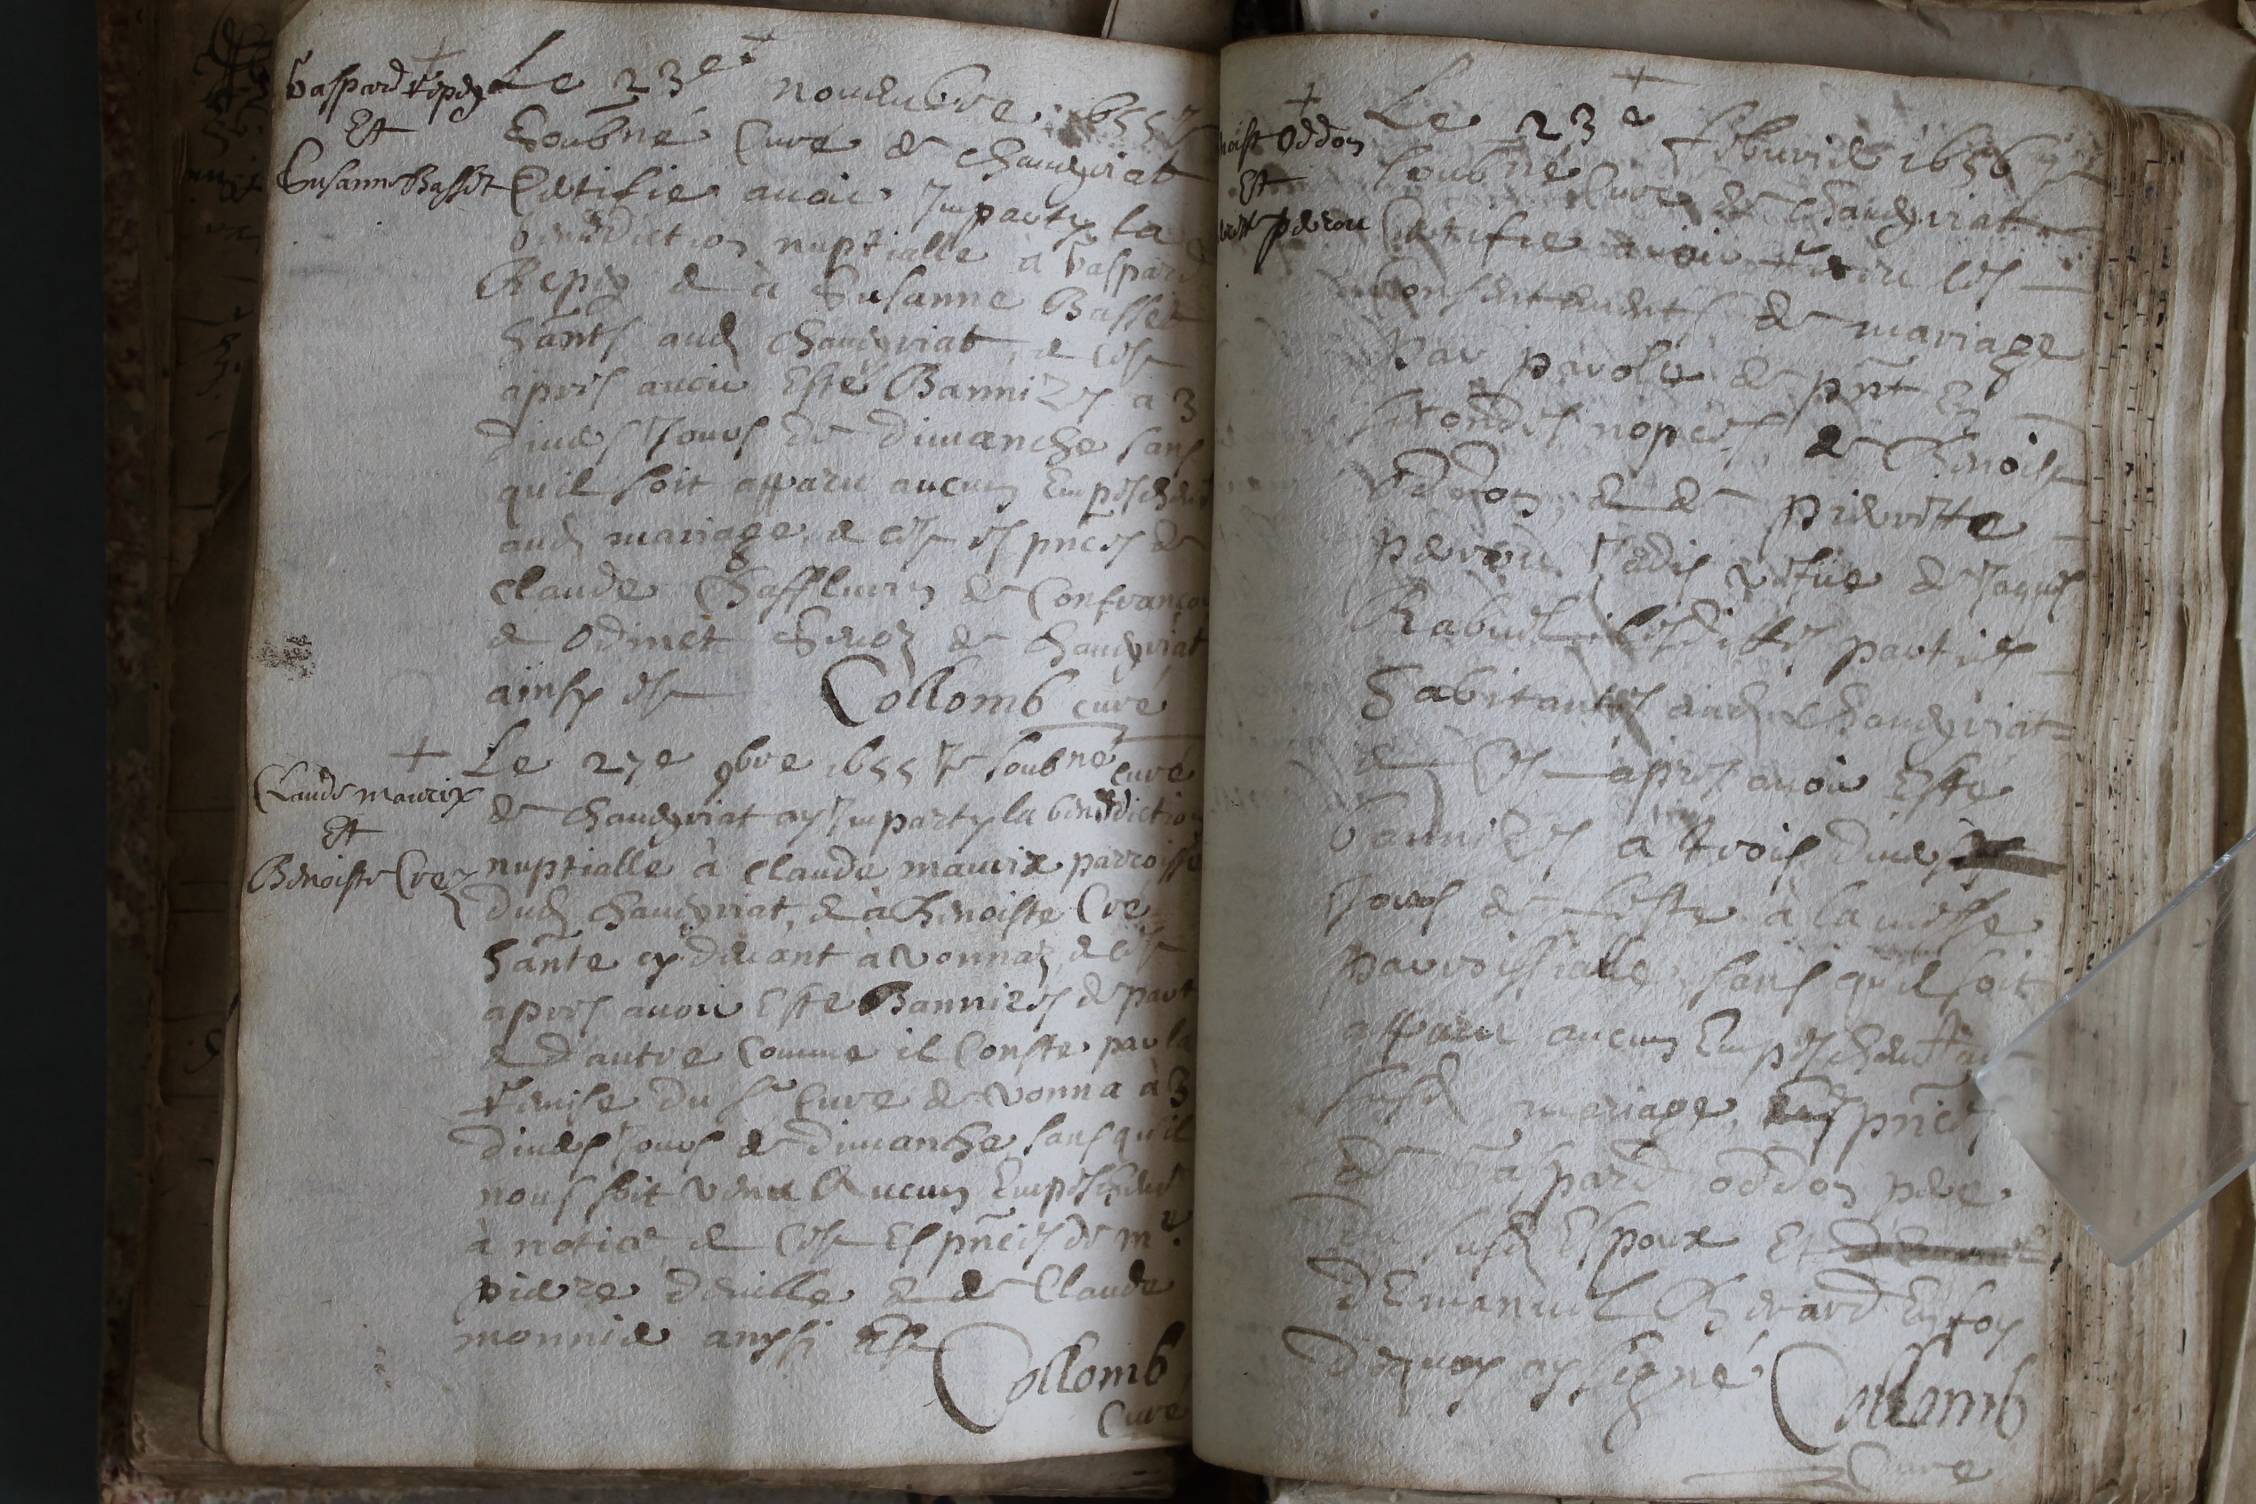 Gaspard Repey
Et
Susanne Basset
Le 23e novembre 1655 Je
Soubné Curé de Chaveyriat
Certifie avoir Imparty la
benediction nuptialle à Gaspard
Repey & à Susanne Basset
hants aud Chaveyriat, & ce
apres avoir Esté Bannizes a 3
divers Jours de dimanche sans
quil soit apparu aucun Empeschemt
aud mariage, & ce es pnces de
Claude Chafflurin de Confrançon
& Odinet de Chaveyriat
ainsy est Collomb curé
Claude maurix
Et
Benoiste Crez
Le 27e 9bre 1655 Je soubné curé
de Chaveyriat ay Imparty la benediction
nuptialle à Claude maurix parroisse
dud Chaveyriat, & à Benoiste Cre
hante cy devant à vonnaz, & ce
apres avoir Este Bannizes de part
& d'autre Comme il Conste par la
remise du sr Curé de vonna à 3
divers Jours de dimanche sans quil
nous soit venu Aucun Empeschemt
à notice, & ce Es pnces de me
pierre deville & de Claude
monnier aynsi Est
Collomb
Curé
noist Oddon
Et
perrou
Le 23e feburier 1656 Je
soubné Curé de Chaveyriat
Certifie avoir les
Consentements de mariage
par parolle de pnt &
secondes nopces de Benoist
Oddon, & de pierrette
perrou Jadis vefve de Jaques
Rabuel lesdittes parties
habitantes aud Chaveyriat
& Ce apres avoir Esté
bannizes à trois divers
Jours de feste à la messe
parroissialle, sans quil soit
apparu aucun Empeschemt au
susd mariage, Es pnces
de Gaspard oddon pere
du susd Espoux Et
D'Emanuel Cherard En foy
dequoy ay signé Collomb
Curé